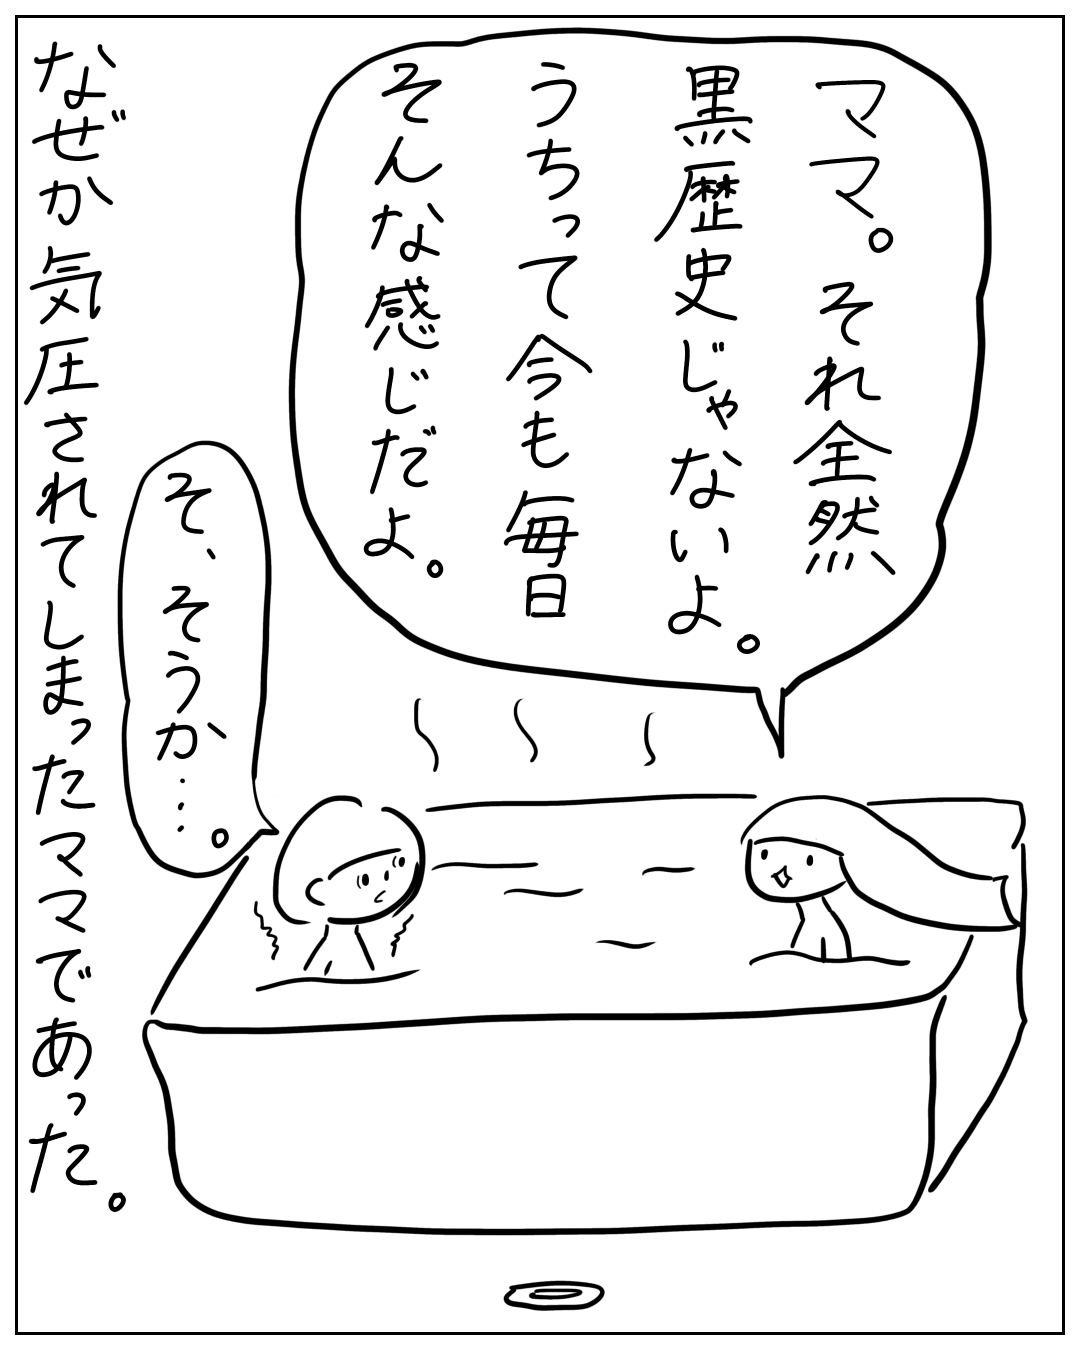 ママ。それ全然、
黒歴史じゃないよ。
うちって今も毎日
そんな感じだよ。
そ、そうか…。
なぜか気圧されてしまったママであった。